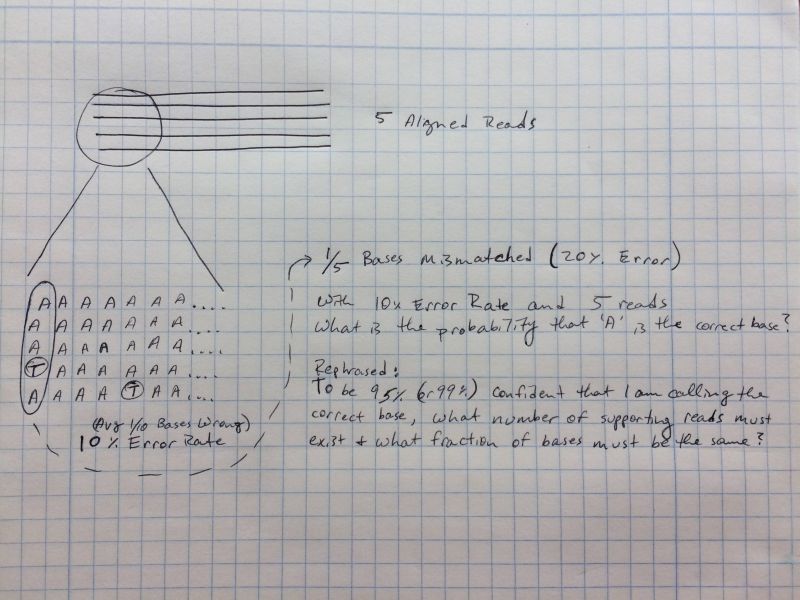 5 Aligned Reads
1/5 Bases Mismatched (20% Error)
A A A A A A A....
A A A A A A A....
A A A A A A A....
T A A A A A A....
A A A A T A A....
(Avg 1/10 Bases Wrong)
10% Error Rate
With 10% Error Rate and 5 reads
What is the probability that 'A' is the correct base?
Rephrased:
To be 95% (or 99%) confident that I am calling the
correct base, what number of supporting reads must
exist + what fraction of bases must be the same?